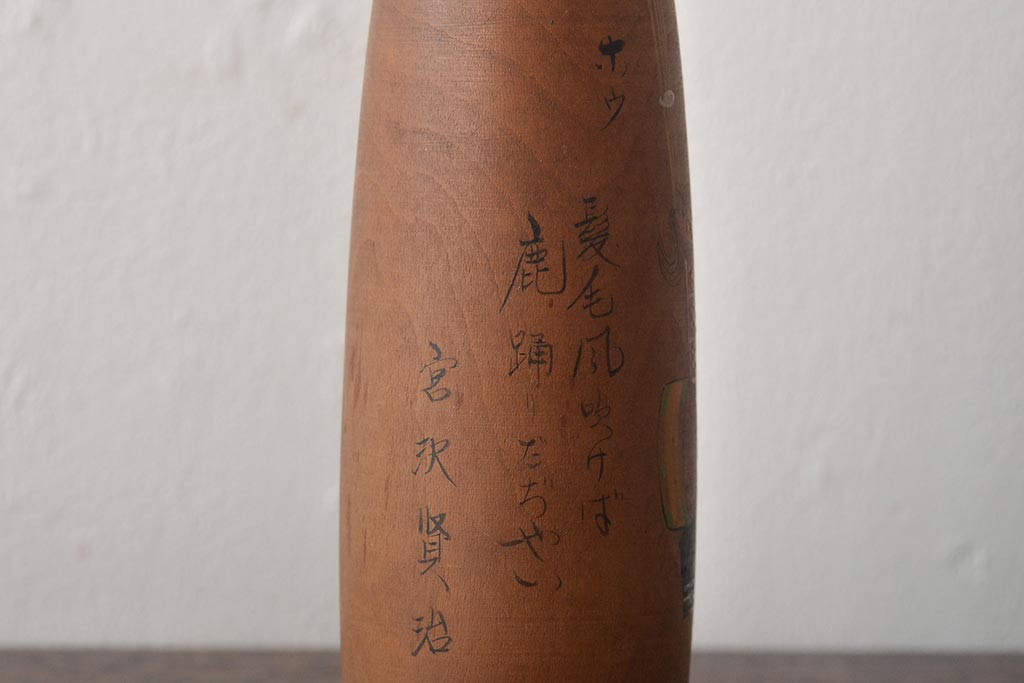 ホウ
髪毛風吹けば
鹿踊りだぢゃい
宮沢賢治